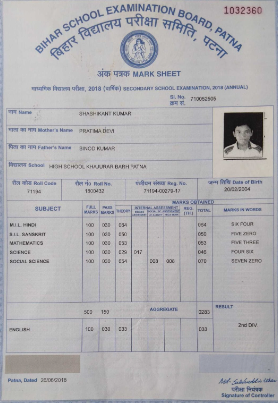 1032360
BIHAR SCHOOL EXAMINATION BOARD, PATNA
बिहार विद्यालय परीक्षा समिति, पटना
अंक पत्रक MARK SHEET
माध्यमिक विद्यालय परीक्षा, 2018 (वार्षिक) SECONDARY SCHOOL EXAMINATION, 2018 (ANNUAL)
Sl. No.
क्रम सं.
नाम Name SHASHIKANT KUMAR
माता का नाम Mother's Name PRATIMA DEVI
पिता का नाम Father's Name BINOD KUMAR
विद्यालय School HIGH SCHOOL KHAJURAR PATNA
रौल कोड Roll Code रौल नं० Roll No. पंजीयन संख्या Reg. No. जन्म तिथि Date of Birth
71194 1800432 20/02/2004
MARKS OBTAINED
SUBJECT FULL MARKS PASS MARKS THEORY INTERNAL ASSESSMENT REG. TOTAL MARKS IN WORDS
M.I.L. HINDI 100 030 064 064 SIX FOUR
S.I.L. SANSKRIT 100 030 050 050 FIVE ZERO
MATHEMATICS 100 030 053 053 FIVE THREE
SCIENCE 100 030 029 017 046 FOUR SIX
SOCIAL SCIENCE 100 030 054 008 008 070 SEVEN ZERO
500 150 AGGREGATE 283 RESULT
ENGLISH 100 030 033 033 2nd DIV.
Patna, Dated 20/06/2018
परीक्षा नियंत्रक
Signature of Controller